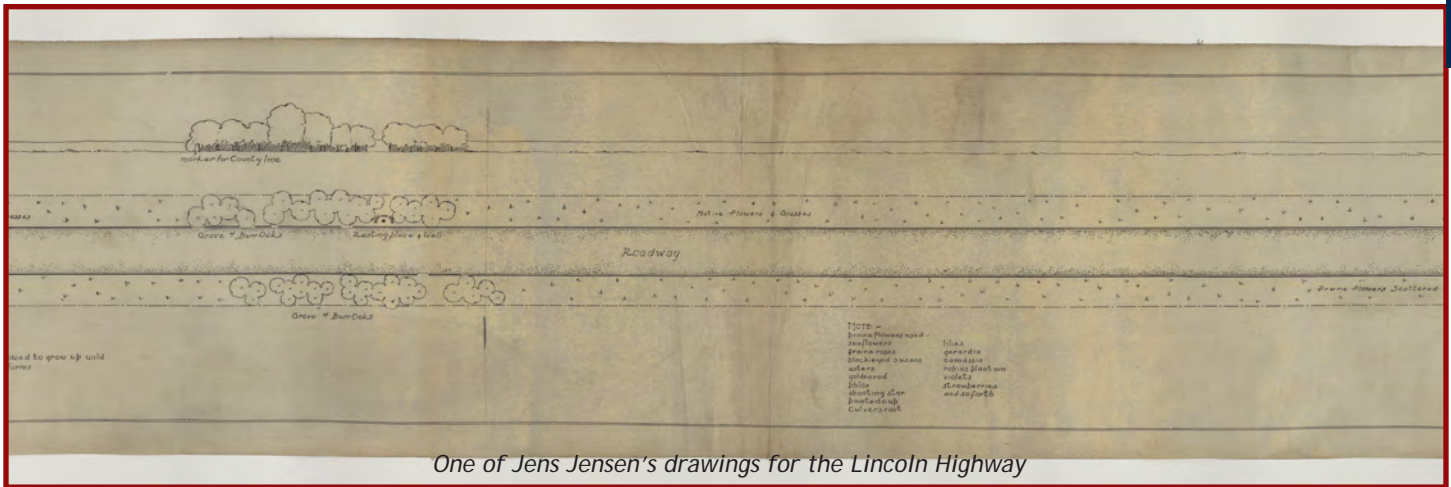 marker for County line
asses
Native flowers & Grasses
Grove of Burr Oaks
Resting place & Well
Roadway
Prairie flowers Scattered
Grove of Burr Oaks
owed to grow up wild
NOTE -
prairie flowers used -
sunflowers
prairie roses
black-eyed susans
asters
goldenrod
phlox
shooting star
painted cup
Culvers root
lilies
gerardia
camassia
robins plantain
violets
strawberries
and so forth
One of Jens Jensen's drawings for the Lincoln Highway